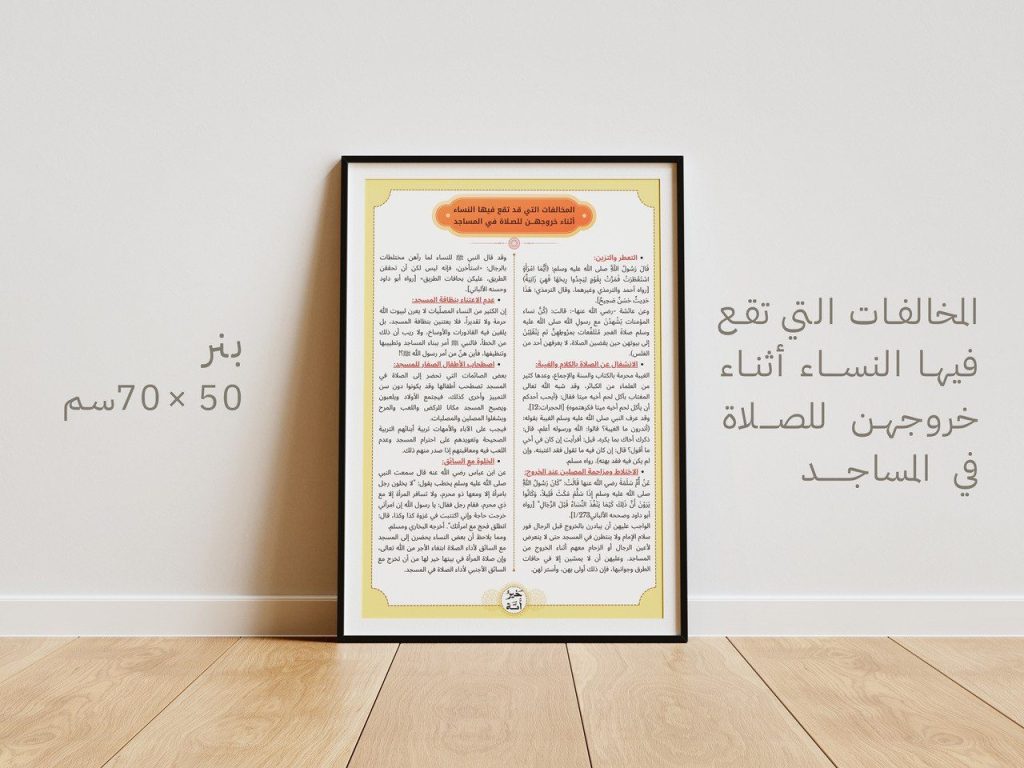 المخالفات التي تقع
فيها النساء أثناء
خروجهن للصلاة
في المساجد
بنر
50 × 70سم
المخالفات التي قد تقع فيها النساء
أثناء خروجهن للصلاة في المساجد
• التعطر والتزين:
قَالَ رَسُولُ اللَّهِ صلى الله عليه وسلم: (أَيُّمَا امْرَأَةٍ
اسْتَعْطَرَتْ فَمَرَّتْ بِقَوْمٍ لِيَجِدُوا رِيحَهَا فَهِيَ زَانِيَةٌ)
[رواه أحمد والترمذي وغيرهما. وقال الترمذي: هَذَا
حَدِيثٌ حَسَنٌ صَحِيحٌ].
وعن عائشة -رضي الله عنها-: قالت: (كُنَّ نساء
المؤمنات يَشْهَدْنَ مع رسول الله صلى الله عليه
وسلم صلاة الفجر مُتَلَفِّعَات بمروطِهِنَّ ثم يَنْقَلِبْنَ
إلى بيوتهن حين يقضين الصلاة، لا يعرفهن أحد من
الغلس).
• الانشغال عن الصلاة بالكلام والغيبة:
الغيبة محرمة بالكتاب والسنة والإجماع، وعدها كثير
من العلماء من الكبائر، وقد شبه الله تعالى
المغتاب بآكل لحم أخيه ميتا فقال: {أيحب أحدكم
أن يأكل لحم أخيه ميتا فكرهتموه} [الحجرات:12].
وقد عرف النبي صلى الله عليه وسلم الغيبة بقوله:
(أتدرون ما الغيبة؟ قالوا: الله ورسوله أعلم. قال:
ذكرك أخاك بما يكره. قيل: أفرأيت إن كان في أخي
ما أقول؟ قال: إن كان فيه ما تقول فقد اغتبته. وإن
لم يكن فيه فقد بهته). رواه مسلم.
• الاختلاط ومزاحمة المصلين عند الخروج:
عَنْ أُمِّ سَلَمَةَ رضي الله عنها قَالَتْ: "كَانَ رَسُولُ اللَّهِ
صلى الله عليه وسلم إِذَا سَلَّمَ مَكَثَ قَلِيلًا، وَكَانُوا
يَرَوْنَ أَنَّ ذَلِكَ كَيْمَا يَنْفُذَ النِّسَاءُ قَبْلَ الرِّجَالِ" [رواه
أبو داود وصححه الألباني1/273].
الواجب عليهن أن يبادرن بالخروج قبل الرجال فور
سلام الإمام ولا ينتظرن في المسجد حتى لا يتعرضن
لأعين الرجال أو الزحام معهم أثناء الخروج من
المساجد، وعليهن أن لا يمشين إلا في حافات
الطرق وجوانبها، فإن ذلك أولى بهن، وأستر لهن.
وقد قال النبي ﷺ للنساء لما رآهن مختلطات
بالرجال: «استأخرن، فإنه ليس لكن أن تحققن
الطريق، عليكن بحافات الطريق» [رواه أبو داود
وحسنه الألباني].
• عدم الاعتناء بنظافة المسجد:
إن الكثير من النساء المصليات لا يعرن لبيوت الله
حرمة ولا تقديراً، فلا يعتنين بنظافة المسجد، بل
يلقين فيه القاذورات والأوساخ، ولا ريب أن ذلك
من الخطأ، فالنبي ﷺ أمر ببناء المساجد وتطييبها
وتنظيفها، فأين هنّ من أمر رسول الله ﷺ؟!
• اصطحاب الأطفال الصغار للمسجد:
بعض الصائمات التي تحضر إلى الصلاة في
المسجد تصطحب أطفالها وقد يكونوا دون سن
التمييز وأخرى كذلك، فيجتمع الأولاد ويلعبون
ويصبح المسجد مكانا للركض واللعب والمرح
ويشغلوا المصلين والمصليات.
فيجب على الآباء والأمهات تربية أبنائهم التربية
الصحيحة وتعويدهم على احترام المسجد وعدم
اللعب فيه ومعاقبتهم إذا صدر منهم ذلك.
• الخلوة مع السائق:
عن ابن عباس رضي الله عنه قال سمعت النبي
صلى الله عليه وسلم يخطب يقول: "لا يخلون رجل
بامرأة إلا ومعها ذو محرم، ولا تسافر المرأة إلا مع
ذي محرم، فقام رجل فقال: يا رسول الله إن امرأتي
خرجت حاجة وإني اكتتبت في غزوة كذا وكذا، قال:
انطلق فحج مع امرأتك". أخرجه البخاري ومسلم.
ومما يلاحظ أن بعض النساء يحضرن إلى المسجد
مع السائق لأداء الصلاة ابتغاء الأجر من الله تعالى،
وإن صلاة المرأة في بيتها خير لها من أن تخرج مع
السائق الأجنبي لأداء الصلاة في المسجد.
خير
أمة